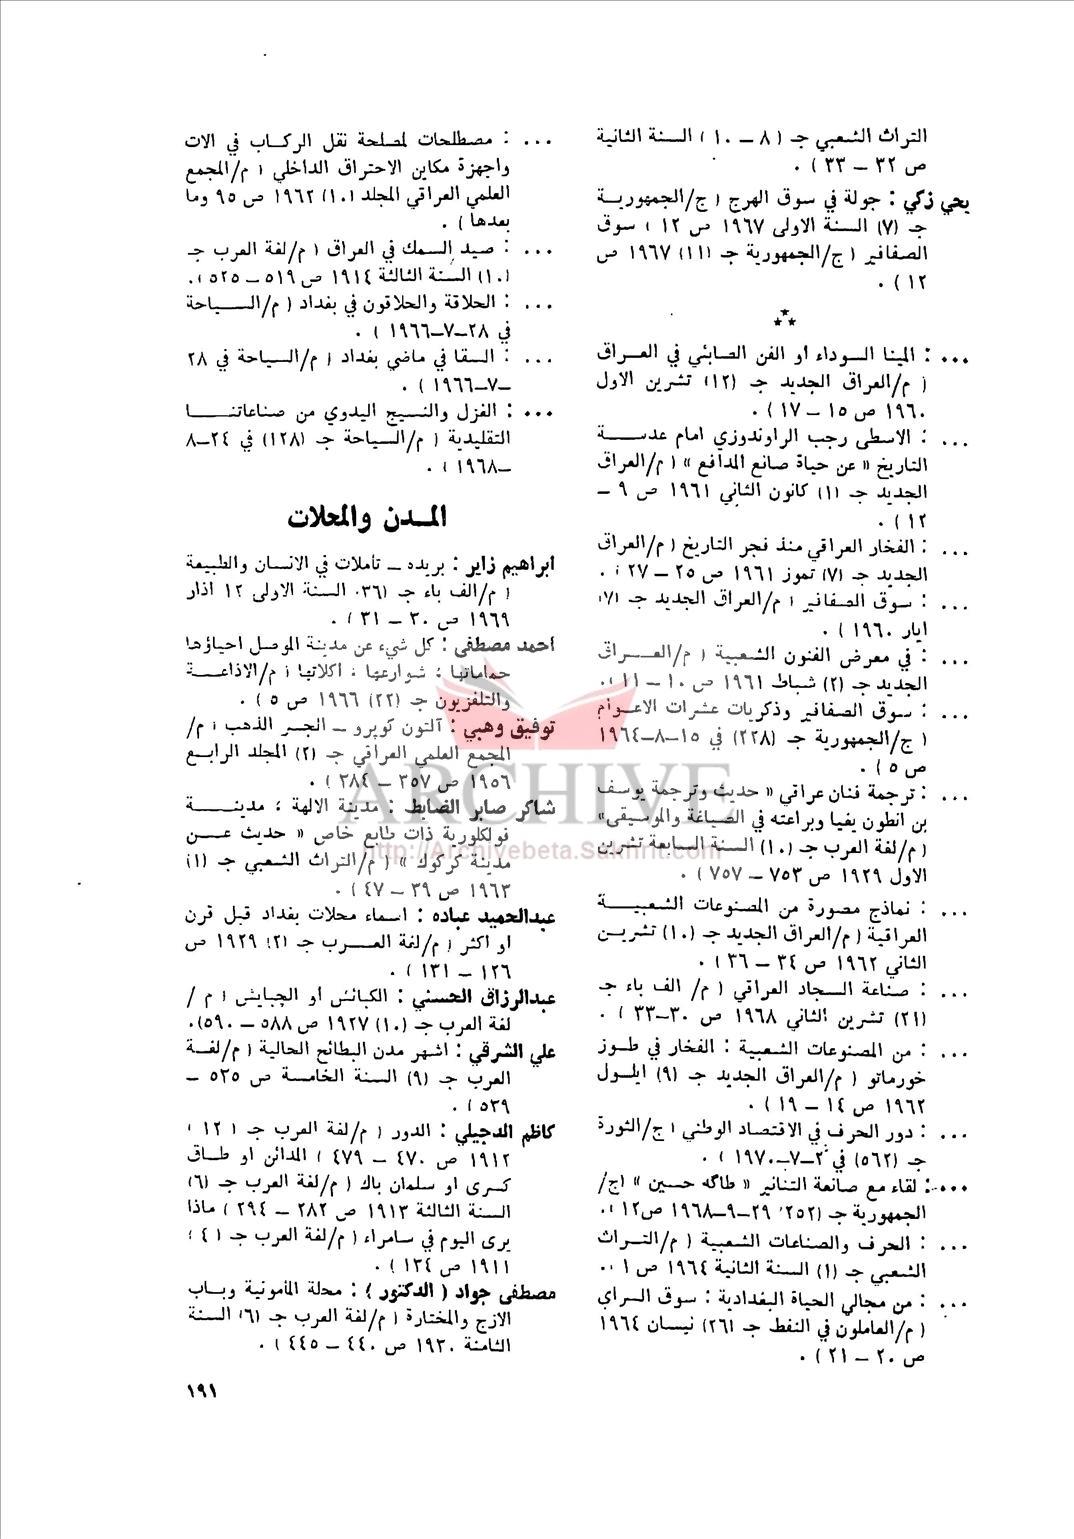 التراث الشعبي جـ ( ٨ – ١٠ ) السنة الثانية
ص ٣٢ – ٣٣ ) .
يحي زكي : جولة في سوق الهرج ( ج/الجمهورية
جـ (٧) السنة الاولى ١٩٦٧ ص ١٢ ) سوق
الصفافير ( ج/الجمهورية جـ (١١) ١٩٦٧ ص
١٢ ) .
***
... : المينا السوداء او الفن الصابئي في العراق
( م/العراق الجديد جـ (١٢) تشرين الاول
١٩٦٠ ص ١٥ – ١٧ ) .
... : الاسطى رجب الراوندوزي امام عدسة
التاريخ « عن حياة صانع المدافع » ( م/العراق
الجديد جـ (١) كانون الثاني ١٩٦١ ص ٩ –
١٢ ) .
... : الفخار العراقي منذ فجر التاريخ ( م/العراق
الجديد جـ (٧) تموز ١٩٦١ ص ٢٥ – ٢٧ ) .
... : سوق الصفافير ( م/العراق الجديد جـ (٧)
ايار ١٩٦٠ ) .
... : في معرض الفنون الشعبية ( م/العراق
الجديد جـ (٢) شباط ١٩٦١ ص ١٠ – ١١ ) .
... : سوق الصفافير وذكريات عشرات الاعوام
( ج/الجمهورية جـ (٢٢٨) في ١٥–٨–١٩٦٤
ص ٥ ) .
... : ترجمة فنان عراقي « حديث وترجمة يوسف
بن انطون يغيا وبراعته في الصياغة والموسيقى»
( م/لغة العرب جـ (١٠) السنة السابعة تشرين
الاول ١٩٢٩ ص ٧٥٣ – ٧٥٧ ) .
... : نماذج مصورة من المصنوعات الشعبية
العراقية ( م/العراق الجديد جـ (١٠) تشرين
الثاني ١٩٦٢ ص ٣٤ – ٣٦ ) .
... : صناعة السجاد العراقي ( م/ الف باء جـ
(٢١) تشرين الثاني ١٩٦٨ ص ٣٠–٣٣ ) .
... : من المصنوعات الشعبية : الفخار في طوز
خورماتو ( م/العراق الجديد جـ (٩) ايلول
١٩٦٢ ص ١٤ – ١٩ ) .
... : دور الحرف في الاقتصاد الوطني ( ج/الثورة
جـ (٥٦٢) في ٢–٧–١٩٧٠ ) .
... : لقاء مع صانعة التنانير « طاگه حسين » (ج/
الجمهورية جـ (٢٥٢) ٢٩–٩–١٩٦٨ ص١٢) .
... : الحرف والصناعات الشعبية ( م/التراث
الشعبي جـ (١) السنة الثانية ١٩٦٤ ص ١ ) .
... : من مجالي الحياة البغدادية : سوق السراي
( م/العاملون في النفط جـ (٢٦) نيسان ١٩٦٤
ص ٢٠ – ٢١ ) .
... : مصطلحات لمصلحة نقل الركاب في الات
واجهزة مكاين الاحتراق الداخلي ( م/المجمع
العلمي العراقي المجلد (١٠) ١٩٦٢ ص ٩٥ وما
بعدها ) .
... : صيد السمك في العراق ( م/لغة العرب جـ
(١٠) السنة الثالثة ١٩١٤ ص ٥١٩ – ٥٢٥ ) .
... : الحلاقة والحلاقون في بغداد ( م/السياحة
في ٢٨–٧–١٩٦٦ ) .
... : السقا في ماضي بغداد ( م/السياحة في ٢٨
–٧–١٩٦٦ ) .
... : الغزل والنسيج اليدوي من صناعاتنا
التقليدية ( م/السياحة جـ (١٢٨) في ٢٤–٨
–١٩٦٨ ) .
المدن والمحلات
ابراهيم زاير : بريده – تأملات في الانسان والطبيعة
( م/الف باء جـ (٣٦) السنة الاولى ١٢ اذار
١٩٦٩ ص ٣٠ – ٣١ ) .
احمد مصطفى : كل شيء عن مدينة الموصل احياؤها
حماماتها ؛ شوارعها ، اكلاتها ( م/الاذاعة
والتلفزيون جـ (٢٢) ١٩٦٦ ص ٥ ) .
توفيق وهبي : آلتون كوپرو – الجسر الذهب ( م/
المجمع العلمي العراقي جـ (٢) المجلد الرابع
١٩٥٦ ص ٢٥٧ – ٢٨٤ ) .
شاكر صابر الضابط : مدينة الالهة ؛ مدينة
فولكلورية ذات طابع خاص « حديث عن
مدينة كركوك » ( م/التراث الشعبي جـ (١)
١٩٦٣ ص ٣٩ – ٤٧ ) .
عبدالحميد عباده : اسماء محلات بغداد قبل قرن
او اكثر ( م/لغة العرب جـ (٢) ١٩٢٩ ص
١٢٦ – ١٣١ ) .
عبدالرزاق الحسني : الكبائش أو الچبايش ( م /
لغة العرب جـ (١٠) ١٩٢٧ ص ٥٨٨ – ٥٩٠) .
علي الشرقي : اشهر مدن البطائح الحالية ( م/لغة
العرب جـ (٩) السنة الخامسة ص ٥٢٥ –
٥٣٩ ) .
كاظم الدجيلي : الدور ( م/لغة العرب جـ ( ١٢ )
١٩١٢ ص ٤٧٠ – ٤٧٩ ) المدائن او طاق
كسرى او سلمان باك ( م/لغة العرب جـ (٦)
السنة الثالثة ١٩١٣ ص ٢٨٢ – ٢٩٤ ) ماذا
يرى اليوم في سامراء ( م/لغة العرب جـ ( ٤ )
١٩١١ ص ١٣٤ ) .
مصطفى جواد ( الدكتور ) : محلة المأمونية وباب
الازج والمختارة ( م/لغة العرب جـ (٦) السنة
الثامنة ١٩٣٠ ص ٤٤٠ – ٤٤٥ ) .
١٩١
ARCHIVE
http://Archivebeta.Sakhrit.com